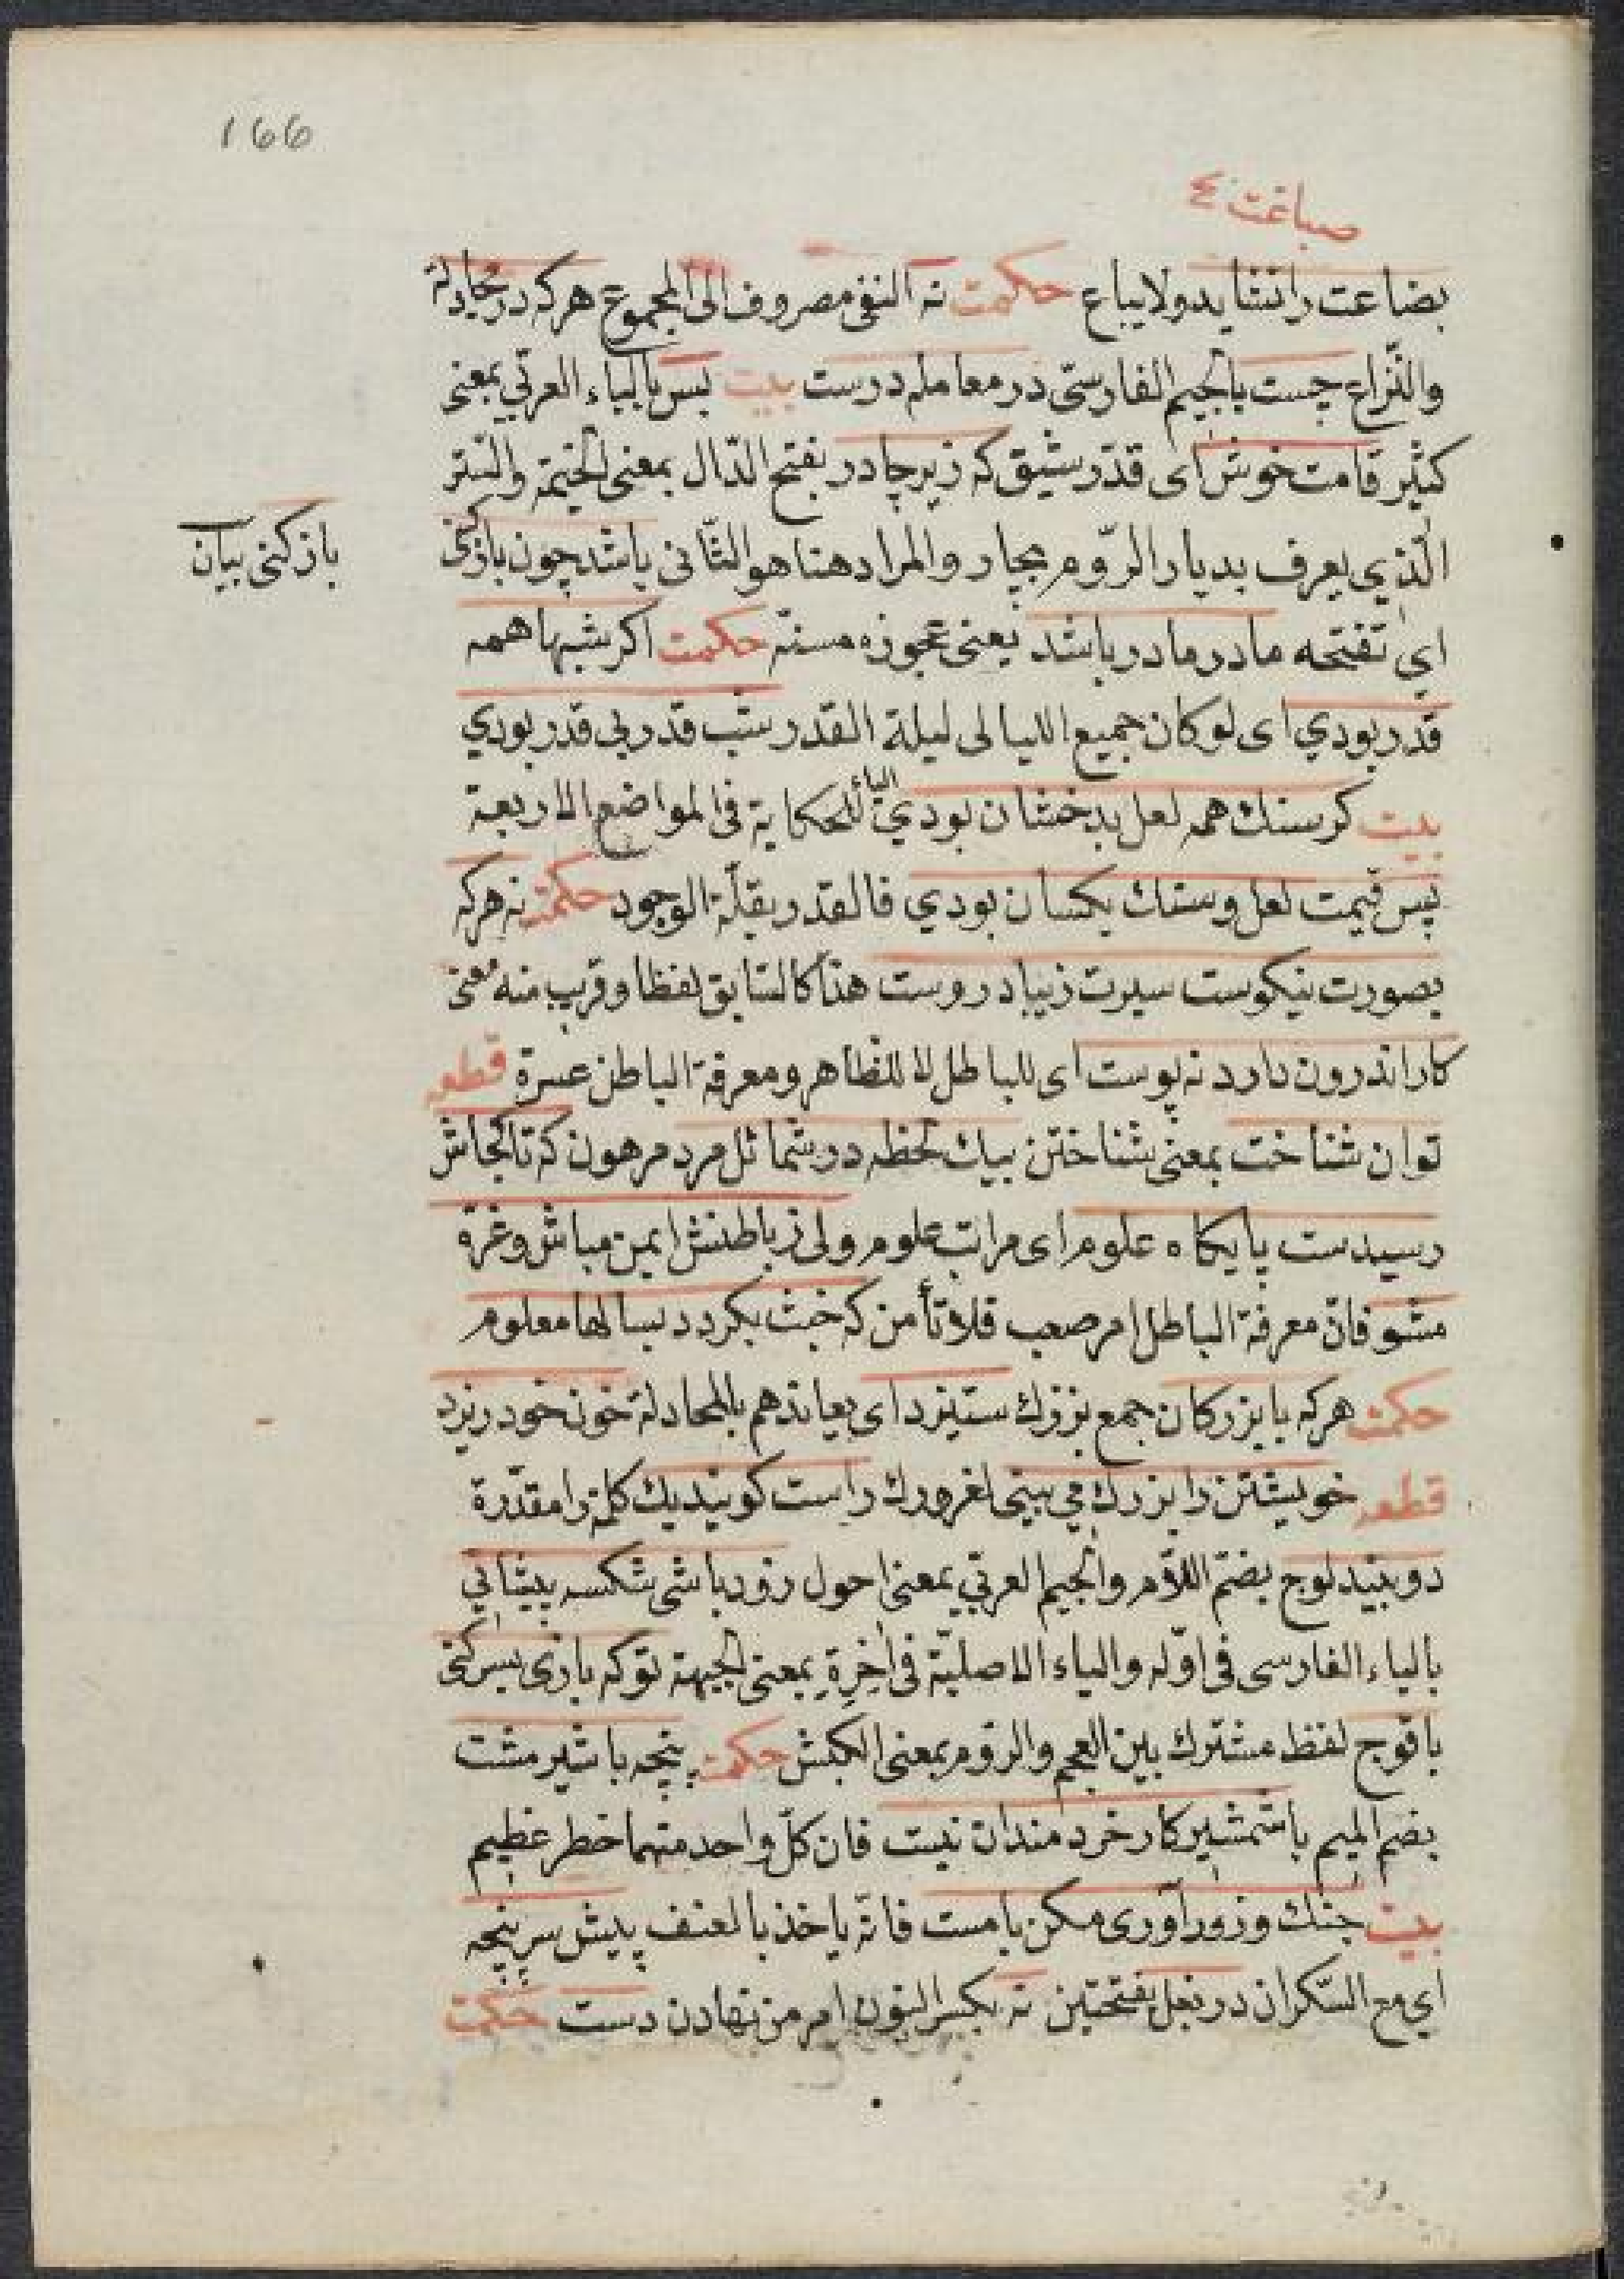 166
صباغت
بضاعت رانشايد ولا يباع حكمت نه النفى مصروف الى المجموع هركه در مجادلة
والنّزاع چست بالجيم الفارسىّ در معامله درست بيت بس بالباء العربىّ بمعنى
كثير قامت خوش اى قدّ رشيق كه زير چادر بفتح الدّال بمعنى الخيمة والسّتر
الّذي يعرف بديار الرّوم بجار والمراد هنا هو الثّانى باشد چون باز كنى
باز كنى بيان
اى تفتحه مادر مادر باشد يعنى عجوزه مسنّه حكمت اكر شبها همه
قدر بودي اى لو كان جميع الليالى ليلة القدر شب قدر بى قدر بودي
بيت كر سنك همه لعل بدخشان بودي الياء للحكاية فى المواضع الاربعة
پس قيمت لعل و سنك يكسان بودي فالقدر بقلّة الوجود حكمت نه هركه
بصورت نيكوست سيرت زيبا دروست هذا كالسّابق لفظا وقريب منه معنى
كار اندرون دارد نه پوست اى للباطل لا للظاهر ومعرفة الباطن عسرة قطعه
توان شناخت بمعنى شناختن بيك لحظه در شمائل مرد مرهون كه تا كجاش
رسيدست پايكاه علوم اى مراتب علوم ولى ز باطنش ايمن مباش وغرّه
مشو فانّ معرفة الباطل امر صعب فلا تأمن كه خبث بكردد بسالها معلوم
حكمت هركه با بزركان جمع بزرك ستيزد اى يعاندهم بالمجادلة خون خود ريزد
قطعه خويشتن را بزرك مي بينى لغرورك راست كويند يك كلمۀ را مقدّرة
دو بيند لوج بضمّ اللّام والجيم العربىّ بمعنى احول زود باشى شكسه پيشاني
بالباء الفارسى فى اوّله والياء الاصليّة فى آخره بمعنى الجبهة تو كه بازى بسر كنى
با قوج لفظ مشترك بين العجم والروم بمعنى الكبش حكمت پنجه با شير مشت
بضم الميم با شمشير كار خردمندان نيست فان كلّ واحد منهما خطر عظيم
بيت جنك و زورآورى مكن با مست فانّه ياخذ بالعنف پيش سر پنجه
اي مع السّكران در بغل بفتحتين نه بكسر النون امر من نهادن دست حكمت